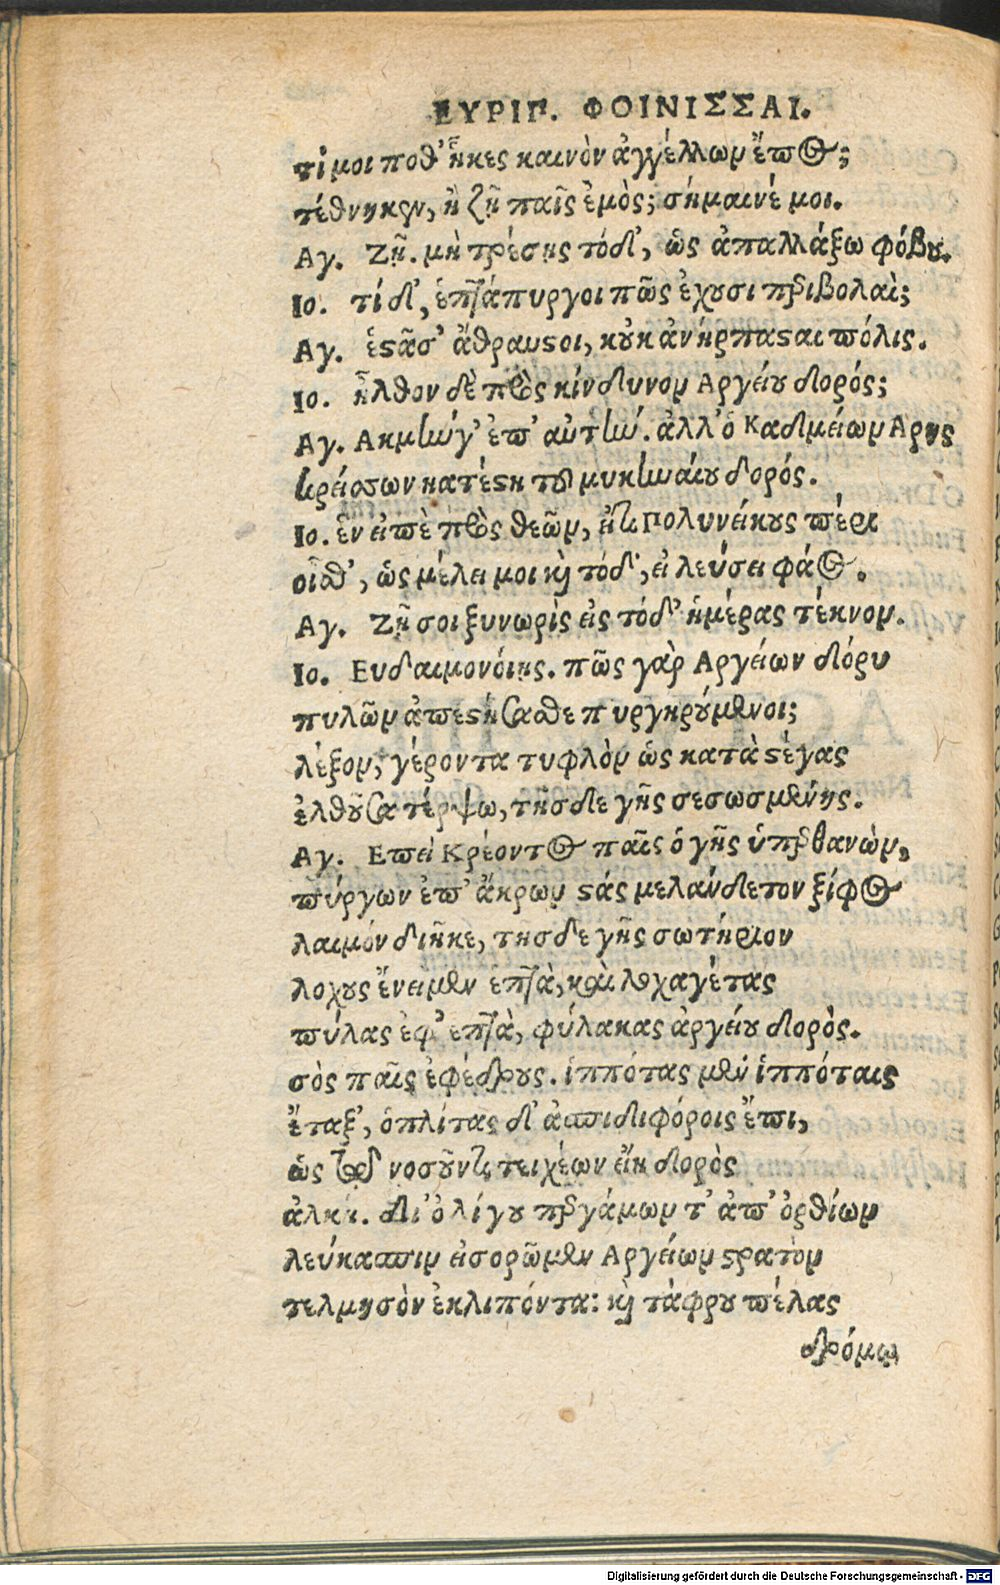 ΕΥΡΙΠ. ΦΟΙΝΙΣΣΑΙ.
τί μοι ποθ' ἧκες καινὸν ἀγγέλλων ἔπος;
τέθνηκεν, ἢ ζῇ παῖς ἐμός; σήμαινέ μοι.
Αγ. Ζῇ. μὴ τρέσῃς τόδ', ὡς ἀπαλλάξω φόβου.
Ιο. τί δ', ἑπτάπυργοι πῶς ἔχουσι περιβολαὶ;
Αγ. ἑστᾶσ' ἄθραυστοι, κοὐκ ἀνήρπασται πόλις.
Ιο. ἦλθον δὲ πρὸς κίνδυνον Αργείου δορός;
Αγ. Ακμήν γ' ἐπ' αὐτήν. ἀλλ' ὁ Καδμείων Αρης
κρείσσων κατέστη τοῦ μυκηναίου δορός.
Ιο. ἓν εἰπὲ πρὸς θεῶν, εἴτι Πολυνείκους πέρι
οἶσθ', ὡς μέλει μοι καὶ τόδ', εἰ λεύσει φάος.
Αγ. Ζῇ σοι ξυνωρὶς εἰς τόδ' ἡμέρας τέκνων.
Ιο. Ευδαιμονοίης. πῶς γὰρ Αργείων δόρυ
πυλῶν ἀπεστήσασθε πυργηρούμενοι;
λέξον, γέροντα τυφλὸν ὡς κατὰ στέγας
ἐλθοῦσα τέρψω, τῆσδε γῆς σεσωσμένης.
Αγ. Επεὶ Κρέοντος παῖς ὁ γῆς ὑπερθανὼν,
πύργων ἐπ' ἄκρων στάς μελάνδετον ξίφος
λαιμόν διῆκε, τησδε γῆς σωτήριον
λοχους ἔνειμεν ἑπτὰ, καὶ λοχαγέτας
πύλας ἐφ' ἑπτὰ, φύλακας ἀργείου δορὸς.
σὸς παῖς ἐφέδρους. ἱππότας μὲν ἱππόταις
ἔταξ', ὁπλίτας δ' ἀσπιδιφόροις ἔπι,
ὡς τῷ νοσοῦντι τειχέων εἴη δορὸς
ἀλκή. δι' ὀλίγου περγάμων τ' ἀπ' ὀρθίων
λεύκασπιν εἰσορῶμεν Αργείων στρατὸν
τελμησὸν ἐκλιπόντα: καὶ τάφρου πέλας
δρόμω
Digitalisierung gefördert durch die Deutsche Forschungsgemeinschaft - DFG